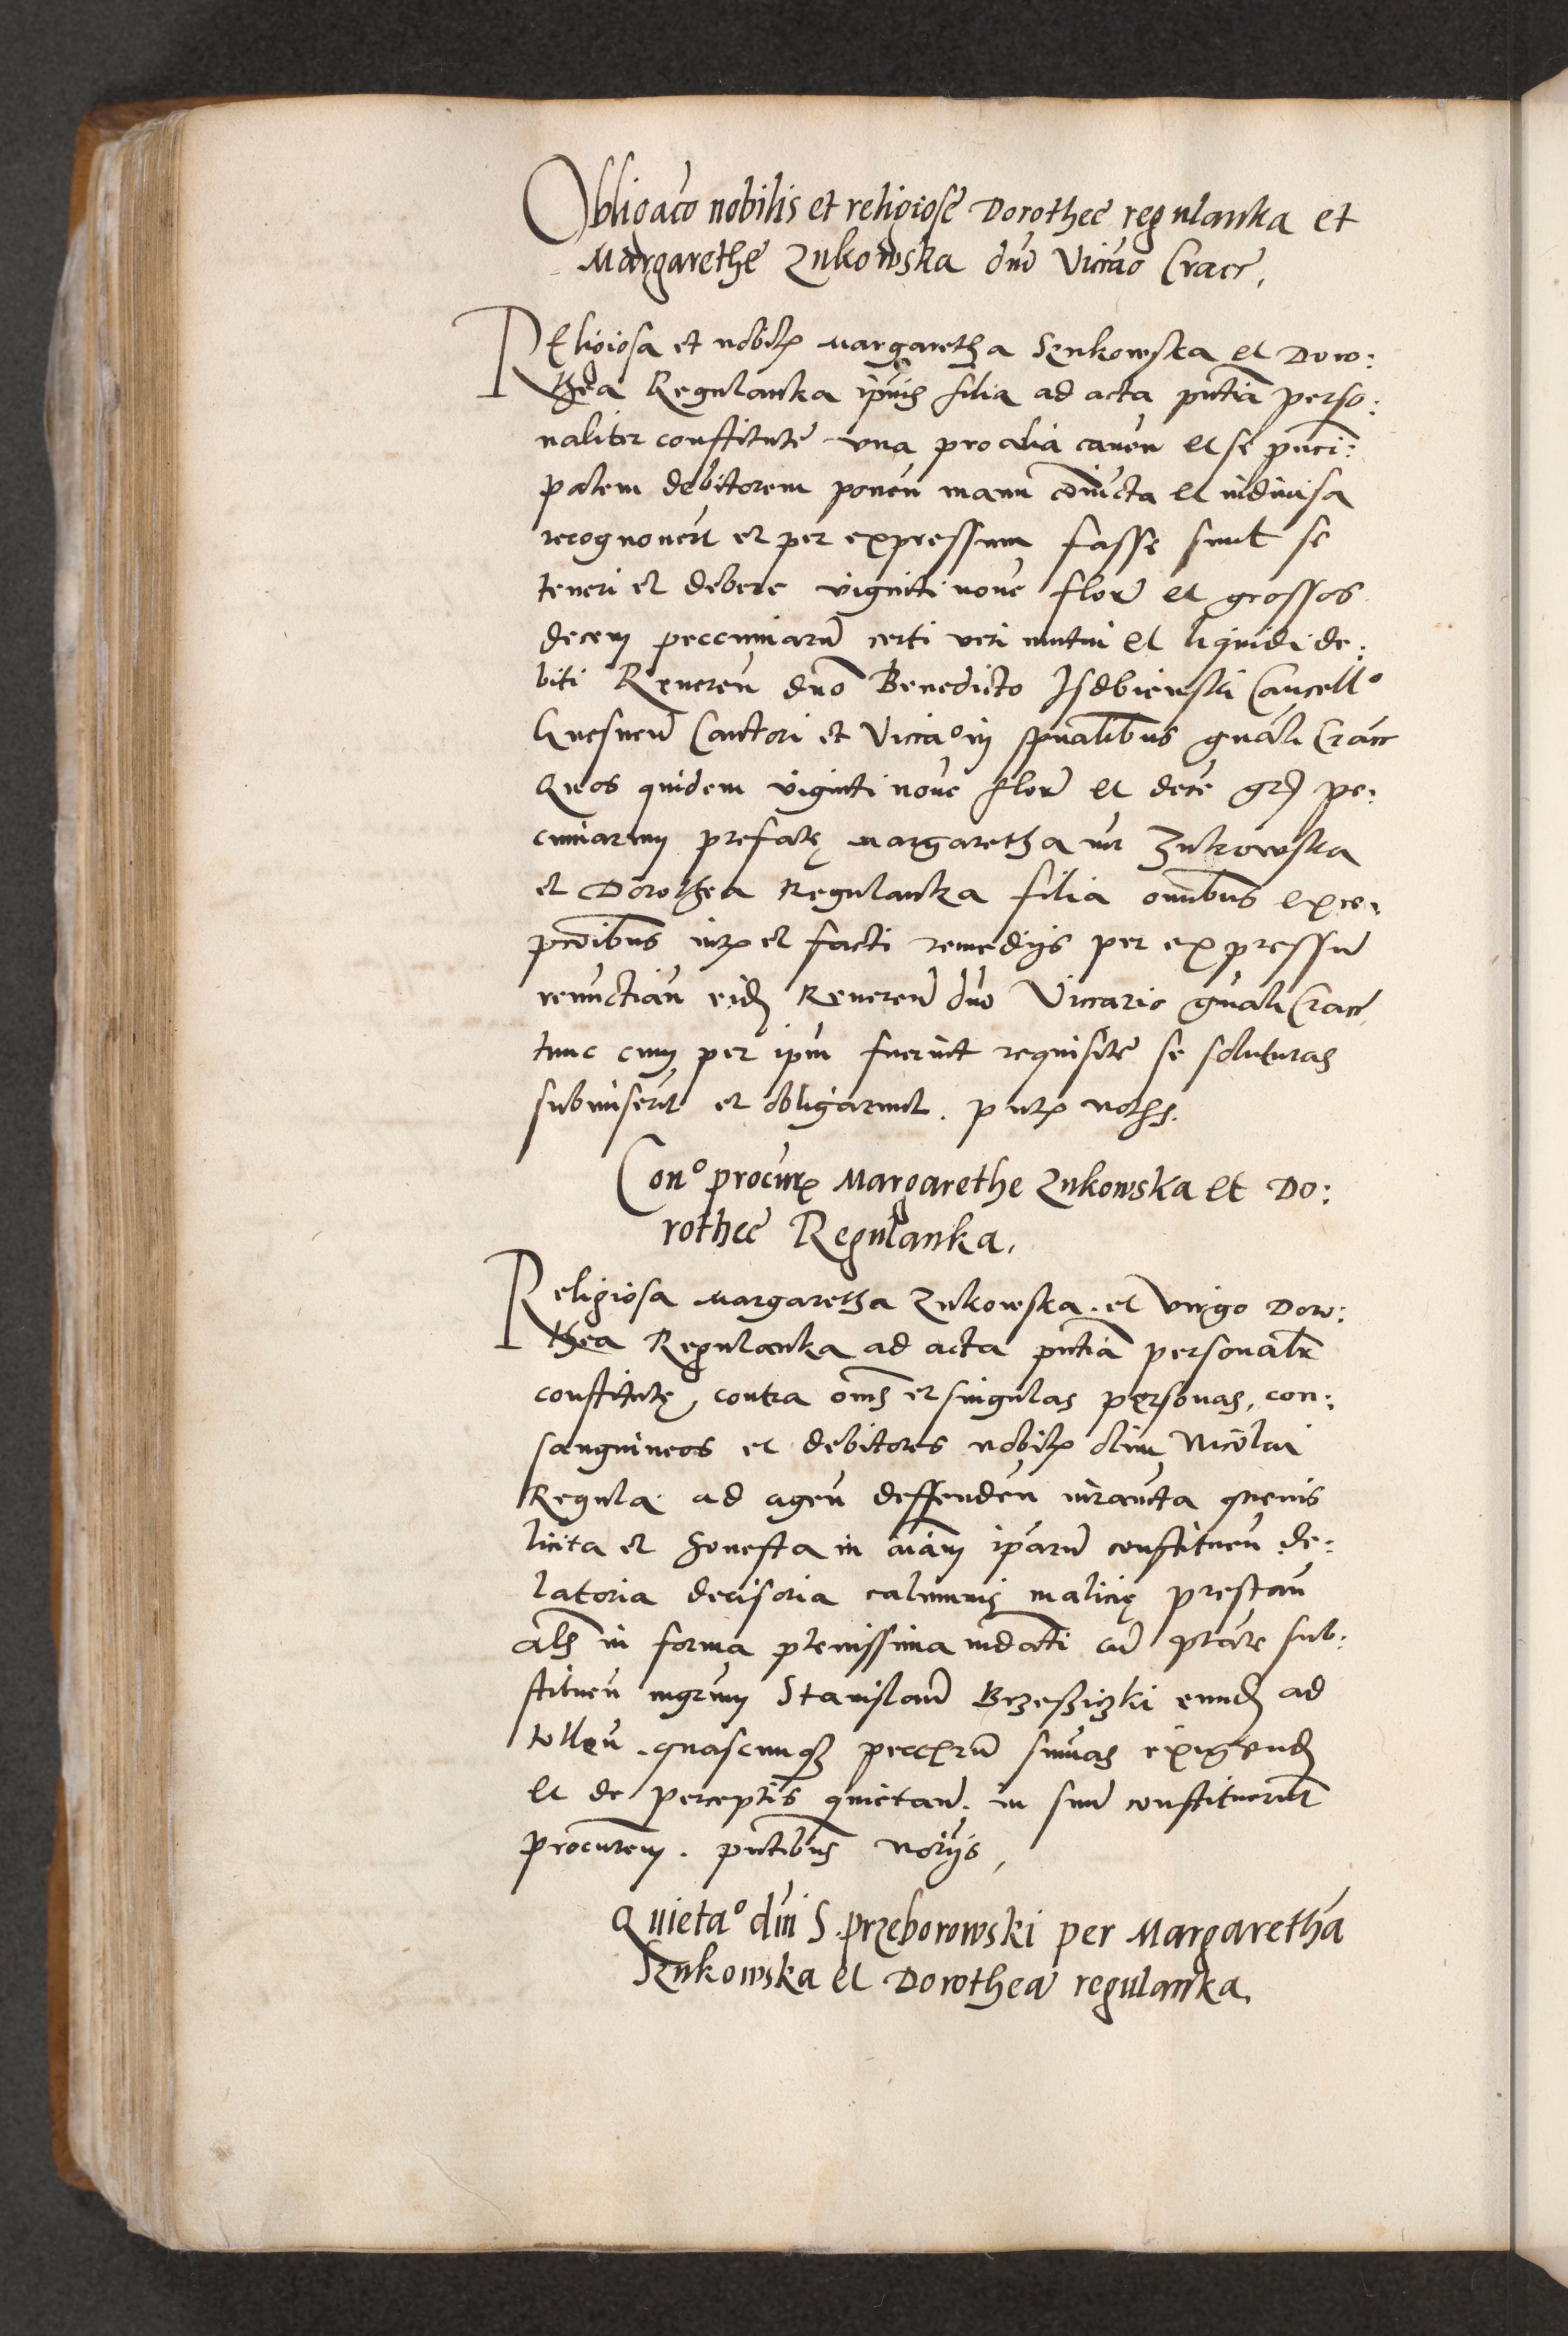 Obligaco nobilis et religiose Dorothee regulanka et
Margarethe Zukowska dno Viccario Cracc.
Religiosa et nobilis Margaretha Szukowska et Doro:
thea Regulanka ipius filia ad acta pntia perso:
naliter constitute una pro alia caven et se princi:
palem debitorem ponen manu coniuncta et indivisa
recognoverut et per expressum fasse sunt se
teneri et debere viginti nove flor et grossos
decem peccuniaru certi veri mutui et liquidi de:
biti Reveren dno Benedicto Isdbienski Cancello
Gnesnen Cantori et Vicca° in spualibus gnali Cracc
Quos quidem viginti nove flor et dece gr pe:
cuniarum prefate Margaretha Zukowska
et Dorothea Regulanka filia omibus exce:
pcoibus iuris et facti remedijs per expressu
renunctian eid Reveren dno Viccario gnali Cracc
tunc cum per ipm fuerint requisite se soluturas
submiserut et obligarunt. pntx noths.
Con° procurx Margarethe Zukowska et Do:
rothee Regulanka.
Religiosa Margaretha Zukowska et virgo Doro:
thea Regulanka ad acta pntia personalr
constitute, contra oms et singulas personas, con:
sanguineos et debitores nobilis olim Nicolai
Regula ad agen deffenden iurameta quevis
licita et honesta in aiam iparu constituen de:
latoria decisoria calumnie malicie prestan
als in forma plenissima mdati cu ptate sub:
stituen mgrum Stanislau Brzesziczki eund ad
tollen quascunqz peccxru sumas exigend
et de perceptis quietan. in suu constituerut
procurem. pntibus norijs,
Quieta° dni S. przeborowski per Margaretha
Szukowska et Dorothea regulanka.